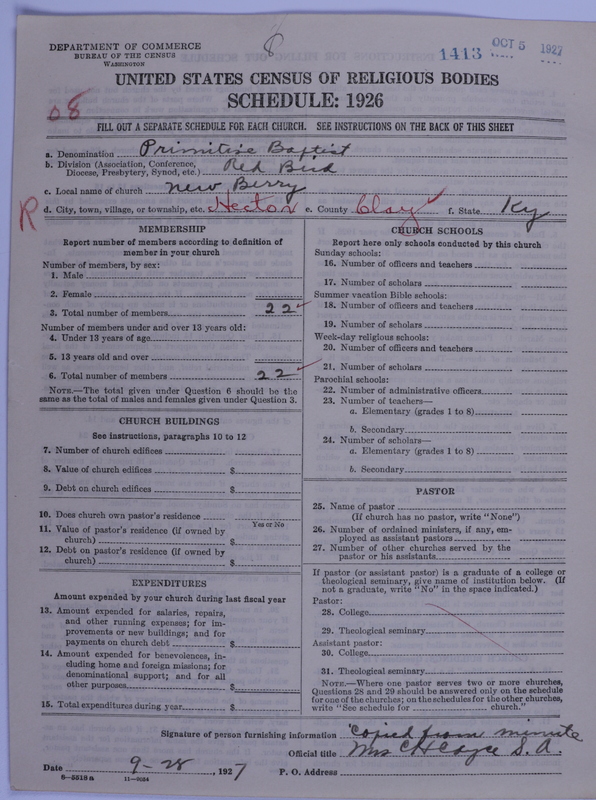 DEPARTMENT OF COMMERCE
BUREAU OF THE CENSUS
WASHINGTON
8
1413 OCT 5 1927
UNITED STATES CENSUS OF RELIGIOUS BODIES
SCHEDULE: 1926
08
FILL OUT A SEPARATE SCHEDULE FOR EACH CHURCH. SEE INSTRUCTIONS ON THE BACK OF THIS SHEET
a. Denomination Primitive Baptist
b. Division (Association, Conference, Diocese, Presbytery, Synod, etc.) Red Bird
c. Local name of church New Berry
R
d. City, town, village, or township, etc. Hector e. County Clay f. State Ky
MEMBERSHIP
Report number of members according to definition of
member in your church
Number of members, by sex:
1. Male
2. Female
3. Total number of members 22
Number of members under and over 13 years old:
4. Under 13 years of age
5. 13 years old and over
6. Total number of members 22
NOTE.—The total given under Question 6 should be the
same as the total of males and females given under Question 3.
CHURCH BUILDINGS
See instructions, paragraphs 10 to 12
7. Number of church edifices
8. Value of church edifices $
9. Debt on church edifices $
10. Does church own pastor's residence
Yes or No
11. Value of pastor's residence (if owned by
church) $
12. Debt on pastor's residence (if owned by
church) $
EXPENDITURES
Amount expended by your church during last fiscal year
13. Amount expended for salaries, repairs,
and other running expenses; for im-
provements or new buildings; and for
payments on church debt $
14. Amount expended for benevolences, in-
cluding home and foreign missions; for
denominational support; and for all
other purposes $
15. Total expenditures during year $
CHURCH SCHOOLS
Report here only schools conducted by this church
Sunday schools:
16. Number of officers and teachers
17. Number of scholars
Summer vacation Bible schools:
18. Number of officers and teachers
19. Number of scholars
Week-day religious schools:
20. Number of officers and teachers
21. Number of scholars
Parochial schools:
22. Number of administrative officers
23. Number of teachers—
a. Elementary (grades 1 to 8)
b. Secondary
24. Number of scholars—
a. Elementary (grades 1 to 8)
b. Secondary
PASTOR
25. Name of pastor
(If church has no pastor, write "None")
26. Number of ordained ministers, if any, em-
ployed as assistant pastors
27. Number of other churches served by the
pastor or his assistants
If pastor (or assistant pastor) is a graduate of a college or
theological seminary, give name of institution below. (If
not a graduate, write "No" in the space indicated.)
Pastor:
28. College
29. Theological seminary
Assistant pastor:
30. College
31. Theological seminary
NOTE.—Where one pastor serves two or more churches,
Questions 28 and 29 should be answered only on the schedule
for one of the churches; on the schedules for the other churches,
write "See schedule for church."
Signature of person furnishing information Copied from minute
Official title Mrs C H Cayce S. A.
Date 9-28, 1927 P. O. Address
6-5518a 11-9024